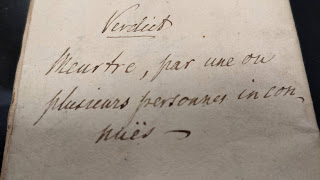 Verdict
Meurtre, par une ou
plusieurs personnes incon-
nuës —